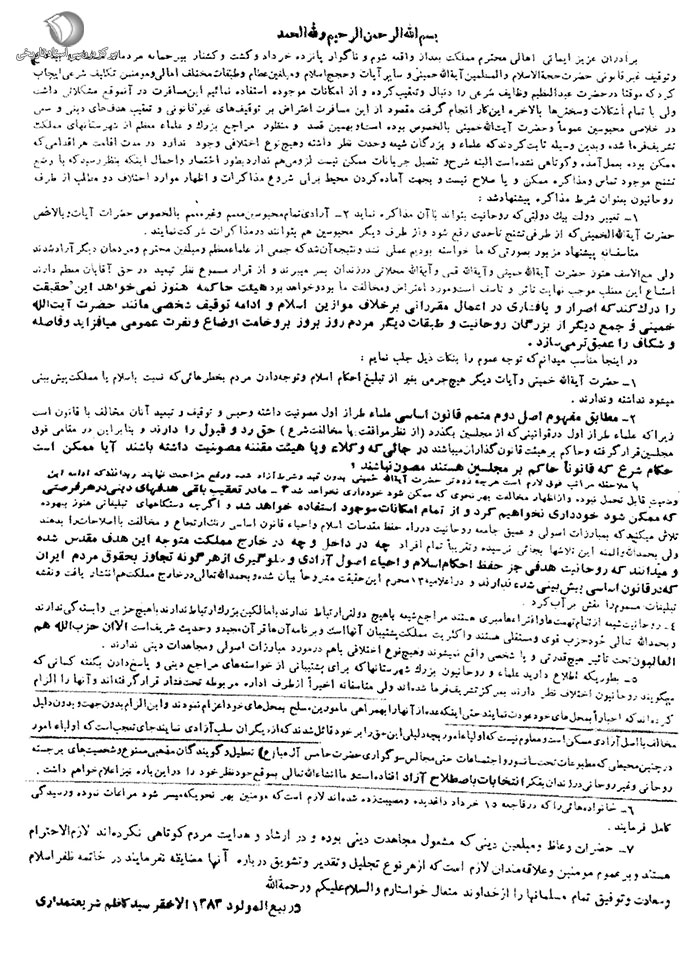 مرکز بررسی اسناد تاریخی
بسم الله الرحمن الرحیم وله الحمد
برادران عزیز ایمانی اهالی محترم مملکت بعداز واقعه شوم و ناگوار پانزده خرداد و کشت و کشتار بیرحمانه مردم
وتوقیف غیرقانونی حضرت حجة‌الاسلام والمسلمین آیة‌الله خمینی و سایر آیات وحجج اسلام ومبلغین عظام وطبقات مختلف اهالی ومومنین تکلیف شرعی ایجاب
کرد که موقتا درحضرت عبدالعظیم وظایف شرعی را دنبال وتعقیب کرده و از امکانات موجوده استفاده نمائیم این مسافرت در آنموقع مشکلاتی داشت
ولی با تمام اشکالات وسختی‌ها بالاخره این کار انجام گرفت مقصود از این مسافرت اعتراض بر توقیف‌های غیرقانونی و تعقیب هدف‌های دینی و سعی
در خلاصی محبوسین عموماً وحضرت آیت‌الله خمینی بالخصوص بوده است وبهمین قصد و منظور مراجع بزرگ و علماء معظم از شهرستانهای مملکت
تشریف‌فرما شده وبدین وسیله ثابت کردند که علماء و بزرگان شیعه وحدت نظر داشته وهیچ نوع اختلافی وجود ندارد در مدت اقامت هر اقدامی که
ممکن بوده بعمل آمده وکوتاهی نشده است البته شرح و تفصیل جریانات ممکن نیست لزومی هم ندارد بطور اختصار واجمال اینکه بنظر رسید که با وضع
تشنج موجود تماس ومذاکره ممکن و یا صلاح نیست و بجهت آماده کردن محیط برای شروع مذاکرات و اظهار موارد اختلاف دو مطلب از طرف
روحانیون بعنوان شرط مذاکره پیشنهاد شد :
۱ - تعییر دولت بیک دولتی که روحانیت بتواند با آن مذاکره نماید ۲ - آزادی تمام محبوسین معمم وغیرمعمم بالخصوص حضرات آیات وبالاخص
حضرت آیة‌الله الخمینی که از طرفی تشنج تاحدی رفع شود واز طرف دیگر محبوسین هم بتوانند در مذاکرات شرکت نمایند .
متاسفانه پیشنهاد مزبور بصورتی که ما خواسته بودیم عملی نشد ونتیجه آن شد که جمعی از علماء معظم ومبلغین محترم ومردمان دیگر آزاد شدند
ولی مع‌الاسف هنوز حضرت آیة‌الله خمینی وآیة‌الله قمی وآیة‌الله محلاتی در زندان بسر میبرند و از قرار مسموع نظر تبعید در حق آقایان معظم دارند
استماع این مطلب موجب نهایت تاثر و تاسف است ومورد اعتراض ومخالفت ما بوده وخواهد بود هیئت حاکمه هنوز نمی‌خواهد این حقیقت
را درك کند که اصرار و پافشاری در اعمال مقرراتی برخلاف موازین اسلام و ادامه توقیف شخصی مانند حضرت آیت‌الله
خمینی و جمع دیگر از بزرگان روحانیت و طبقات دیگر مردم روز بروز بروخامت اوضاع ونفرت عمومی میافزاید وفاصله
و شکاف را عمیق‌تر می‌سازد .
در اینجا مناسب میدانم که توجه عموم را بنکات ذیل جلب نمایم :
۱ - حضرت آیة‌الله خمینی و آیات دیگر هیچ جرمی بغیر از تبلیغ احکام اسلام وتوجه دادن مردم بخطرهائی که نسبت باسلام یا مملکت پیش‌بینی
میشود نداشته وندارند .
۲ - مطابق مفهوم اصل دوم متمم قانون اساسی علماء طراز اول مصونیت داشته وحبس و توقیف و تبعید آنان مخالف با قانون است
زیرا که علماء طراز اول درقوانینی که از مجلسین بگذرد (از نظر موافقت یا مخالفت شرع) حق رد و قبول را دارند و بنابراین در مقامی فوق
مجلسین قرار گرفته وحاکم بر هیئت قانون گذار میباشند در حالی که وکلاء ویا هیئت مقننه مصونیت داشته باشند آیا ممکن است
حکام شرع که قانوناً حاکم بر مجلسین هستند مصون نباشند ؟
با ملاحظه مراتب فوق لازم است هرچه زودتر حضرت آیة‌الله خمینی بدون قید وشرط آزاد شده ورفع مزاحمت نمایند زیرا ادامه این
وضعیت قابل تحمل نبوده و از اظهار مخالفت بهر نحوی که ممکن شود خودداری نخواهد شد ۳ - مادر تعقیب باقی هدفهای دینی در هر فرصتی
که ممکن شود خودداری نخواهیم کرد و از تمام امکانات موجود استفاده خواهد شد و اگرچه دستگاههای تبلیغاتی هنوز بیهوده
تلاش میکنند که بمبارزات اصولی و عمیق جامعه روحانیت در راه حفظ مقدسات اسلام واحیاء قانون اساسی رنگ ارتجاع و مخالفت با اصلاحات را بدهند
ولی بحمدالله والمنه این تلاشها بجائی نرسیده وتقریباً تمام افراد چه در داخل و چه در خارج مملکت متوجه این هدف مقدس شده
و میدانند که روحانیت هدفی جز حفظ احکام اسلام و احیاء اصول آزادی و جلوگیری از هرگونه تجاوز بحقوق مردم ایران
که در قانون اساسی پیش‌بینی شده ندارند و در اعلامیه ۱۳ محرم این حقیقت مشروحاً بیان شده وبحمدالله تعالی در خارج مملکت هم انتشار یافت ونقشه
تبلیغات مسموم را نقش بر آب کرد .
۴ - روحانیت شیعه از تمام تهمت‌ها و افتراءها مبری هستند مراجع شیعه با هیچ دولتی ارتباط ندارند با مالکین بزرگ ارتباط ندارند با هیچ حزبی وابستگی ندارند
وبحمدالله تعالی خود حزب قوی ومستقلی هستند واکثریت مملکت پشتیبان آنها است وبرنامه آن‌ها قرآن مجید وحدیث شریف است الاان حزب‌الله هم
الغالبون تحت تأثیر هیچ قدرتی و یا شخصی واقع نمیشوند وهیچ نوع اختلافی باهم در مورد مبارزات اصولی و مجاهدات دینی ندارند .
۵ - بطوریکه اطلاع دارید علماء و روحانیون بزرگ شهرستانها که برای پشتیبانی از خواسته‌های مراجع دینی و پاسخ دادن بگفته کسانی که
میگویند روحانیون اختلاف نظر دارند بمرکز تشریف‌فرما شده‌اند ولی متاسفانه اخیراً از طرف اداره مربوطه تحت فشار قرار گرفته‌اند وآنها را الزام
کرده‌اند که اجباراً بمحل‌های خود عودت نمایند حتی اینکه عده‌ای از آنها را بهمراهی مامورین مسلح بمحل‌های خود اعزام نمودند واین الزام بدون جهت وبدون دلیل
مخالف با اصل آزادی مسکن است ومعلوم نیست که اولیاء امور بچه دلیلی این حق را برخود قائل شدند که از دیگران سلب آزادی نمایند جای تعجب است که اولیاء امور
در چنین محیطی که مطبوعات تحت سانسور واجتماعات حتی مجالس سوگواری حضرت خامس آل عبا (ع) تعطیل وگویندگان مذهبی ممنوع وشخصیت‌های برجسته
روحانی وغیر روحانی در زندان بفکر انتخابات باصطلاح آزاد افتاده است وما انشاءالله تعالی بموقع خود نظر خود را در این باره نیز اعلام خواهم داشت .
۶ - خانواده‌هائی را که در فاجعه ۱۵ خرداد داغدیده و مصیبت‌زده شده‌اند لازم است که مومنین بهر نحویکه میسر شود مراعات نموده ورسیدگی
کامل فرمایند .
۷ - حضرات وعاظ ومبلغین دینی که مشمول مجاهدت دینی بوده و در ارشاد و هدایت مردم کوتاهی نکرده‌اند لازم الاحترام
هستند و بر عموم مومنین وعلاقه‌مندان لازم است که از هر نوع تجلیل و تقدیر وتشویق درباره آنها مضایقه نفرمایند در خاتمه ظفر اسلام
وسعادت وتوفیق تمام مسلمانها را از خداوند متعال خواستارم والسلام علیکم ورحمة‌الله
ربیع‌المولود ۱۳۸۳ الاحقر سید کاظم شریعتمداری